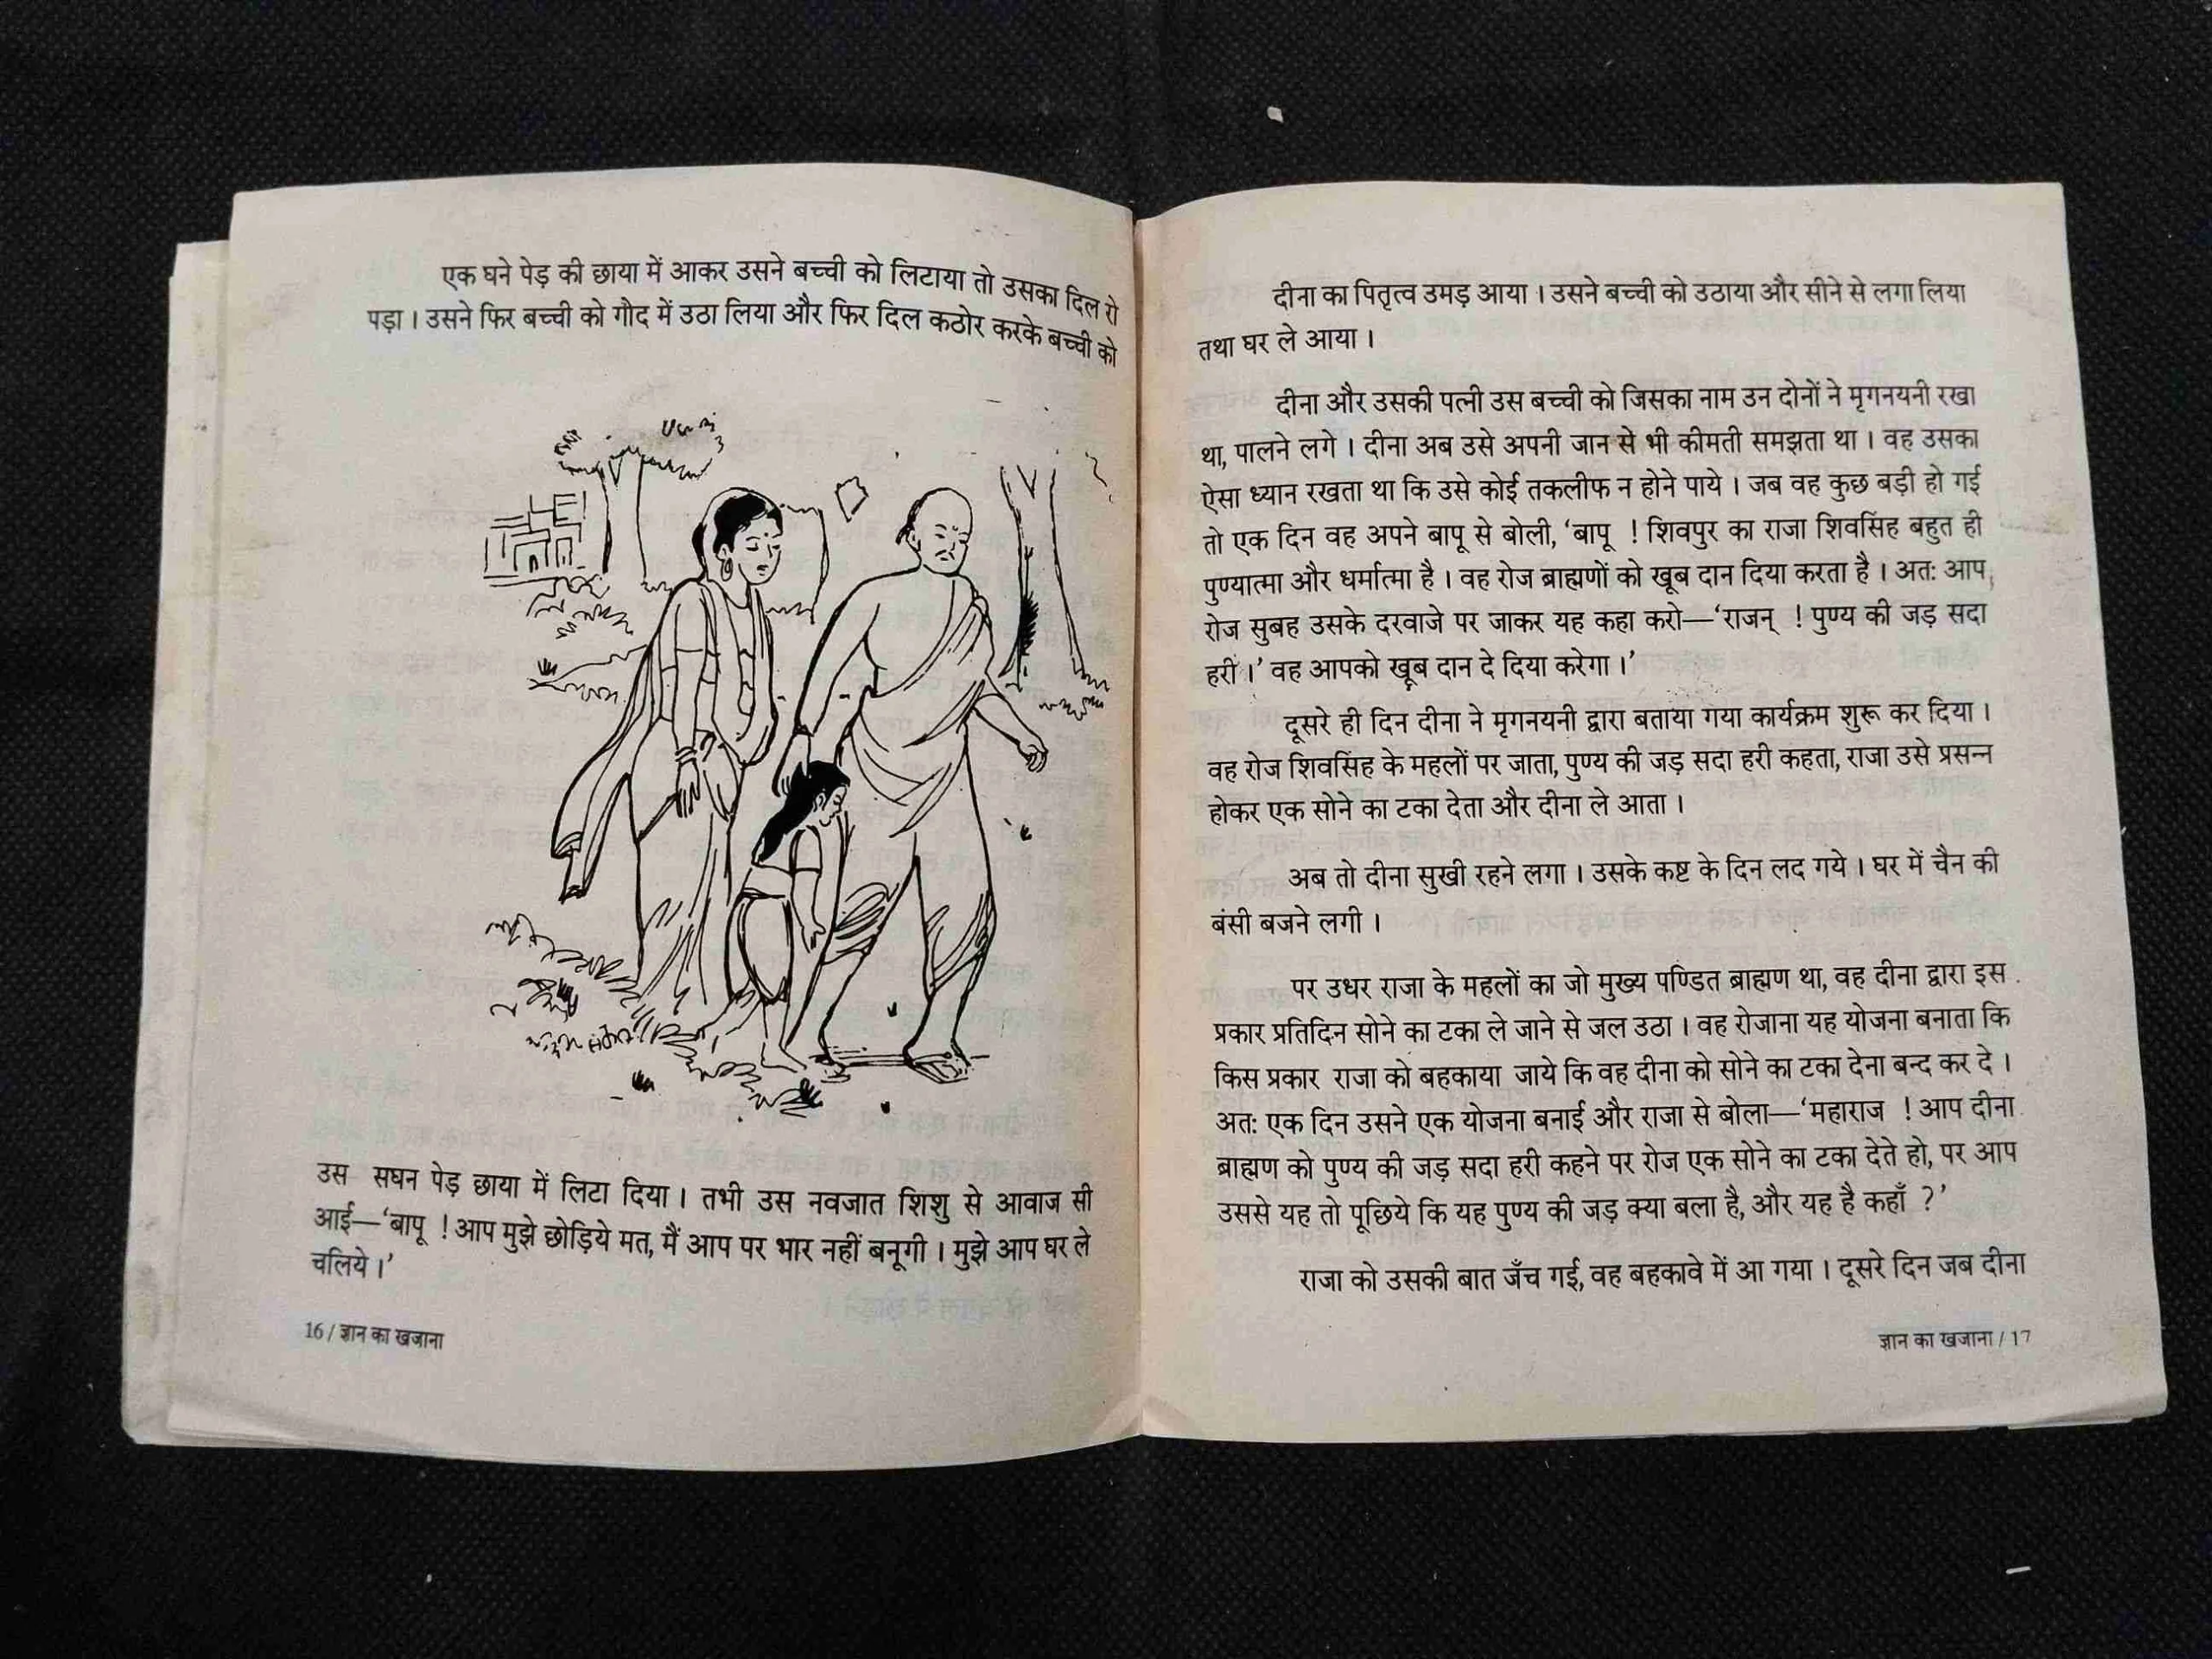 एक घने पेड़ की छाया में आकर उसने बच्ची को लिटाया तो उसका दिल रो
पड़ा । उसने फिर बच्ची को गौद में उठा लिया और फिर दिल कठोर करके बच्ची को
उस सघन पेड़ छाया में लिटा दिया । तभी उस नवजात शिशु से आवाज सी
आई—‘बापू ! आप मुझे छोड़िये मत, मैं आप पर भार नहीं बनूगी । मुझे आप घर ले
चलिये ।’
16 / ज्ञान का खजाना
दीना का पितृत्व उमड़ आया । उसने बच्ची को उठाया और सीने से लगा लिया
तथा घर ले आया ।
दीना और उसकी पत्नी उस बच्ची को जिसका नाम उन दोनों ने मृगनयनी रखा
था, पालने लगे । दीना अब उसे अपनी जान से भी कीमती समझता था । वह उसका
ऐसा ध्यान रखता था कि उसे कोई तकलीफ न होने पाये । जब वह कुछ बड़ी हो गई
तो एक दिन वह अपने बापू से बोली, ‘बापू ! शिवपुर का राजा शिवसिंह बहुत ही
पुण्यात्मा और धर्मात्मा है । वह रोज ब्राह्मणों को खूब दान दिया करता है । अतः आप
रोज सुबह उसके दरवाजे पर जाकर यह कहा करो—‘राजन् ! पुण्य की जड़ सदा
हरी ।’ वह आपको खूब दान दे दिया करेगा ।’
दूसरे ही दिन दीना ने मृगनयनी द्वारा बताया गया कार्यक्रम शुरू कर दिया ।
वह रोज शिवसिंह के महलों पर जाता, पुण्य की जड़ सदा हरी कहता, राजा उसे प्रसन्न
होकर एक सोने का टका देता और दीना ले आता ।
अब तो दीना सुखी रहने लगा । उसके कष्ट के दिन लद गये । घर में चैन की
बंसी बजने लगी ।
पर उधर राजा के महलों का जो मुख्य पण्डित ब्राह्मण था, वह दीना द्वारा इस
प्रकार प्रतिदिन सोने का टका ले जाने से जल उठा । वह रोजाना यह योजना बनाता कि
किस प्रकार राजा को बहकाया जाये कि वह दीना को सोने का टका देना बन्द कर दे ।
अतः एक दिन उसने एक योजना बनाई और राजा से बोला—‘महाराज ! आप दीना
ब्राह्मण को पुण्य की जड़ सदा हरी कहने पर रोज एक सोने का टका देते हो, पर आप
उससे यह तो पूछिये कि यह पुण्य की जड़ क्या बला है, और यह है कहाँ ?’
राजा को उसकी बात जँच गई, वह बहकावे में आ गया । दूसरे दिन जब दीना
ज्ञान का खजाना / 17